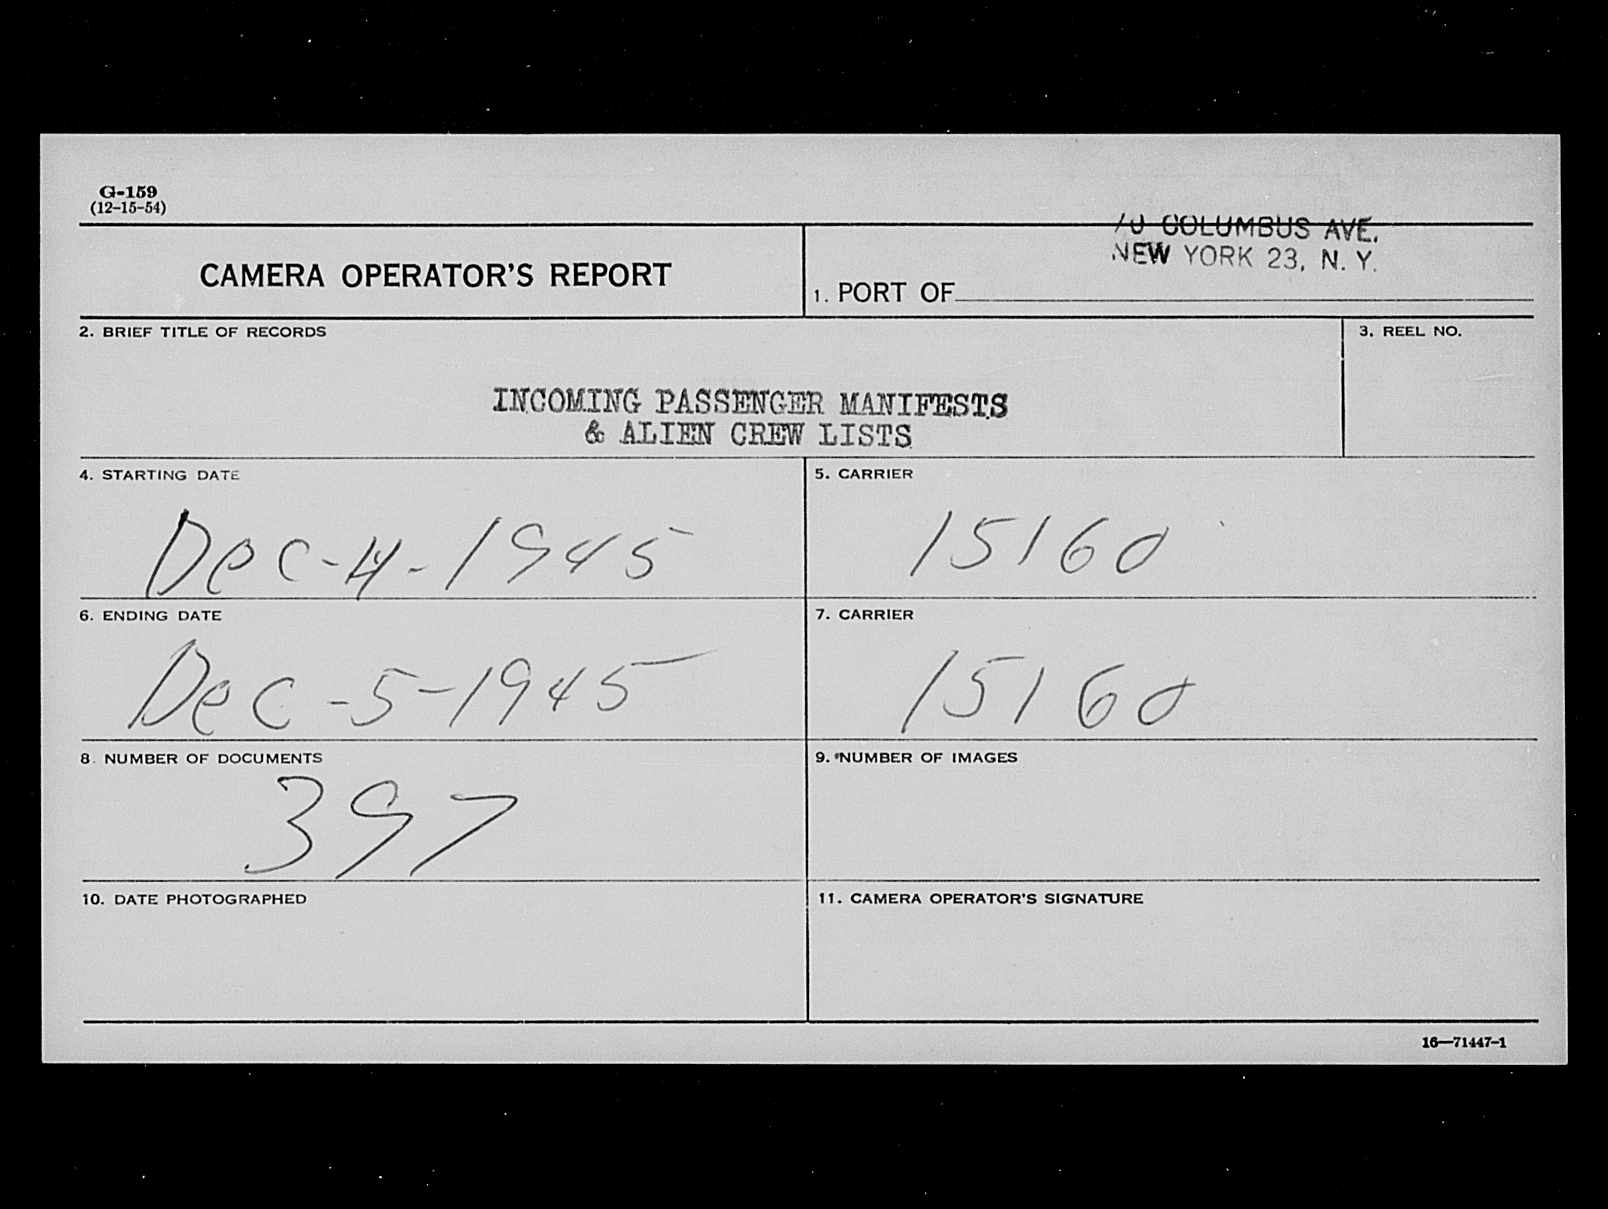 G-159
(12-15-54)
70 COLUMBUS AVE.
NEW YORK 23, N. Y.
CAMERA OPERATOR'S REPORT
1. PORT OF
2. BRIEF TITLE OF RECORDS
3. REEL NO.
INCOMING PASSENGER MANIFESTS
& ALIEN CREW LISTS
4. STARTING DATE
5. CARRIER
Dec-4-1945
15160
6. ENDING DATE
7. CARRIER
Dec-5-1945
15160
8. NUMBER OF DOCUMENTS
9. NUMBER OF IMAGES
397
10. DATE PHOTOGRAPHED
11. CAMERA OPERATOR'S SIGNATURE
16—71447-1